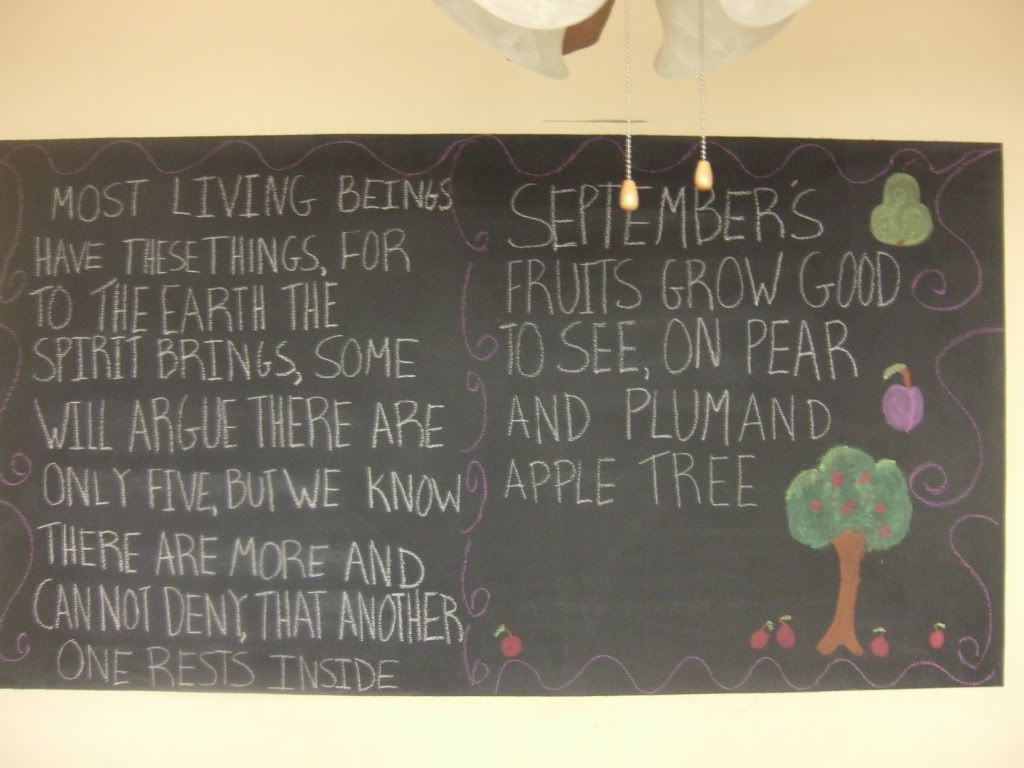 MOST LIVING BEINGS
HAVE THESE THINGS, FOR
TO THE EARTH THE
SPIRIT BRINGS, SOME
WILL ARGUE THERE ARE
ONLY FIVE, BUT WE KNOW
THERE ARE MORE AND
CANNOT DENY, THAT ANOTHER
ONE RESTS INSIDE
SEPTEMBER'S
FRUITS GROW GOOD
TO SEE, ON PEAR
AND PLUM AND
APPLE TREE